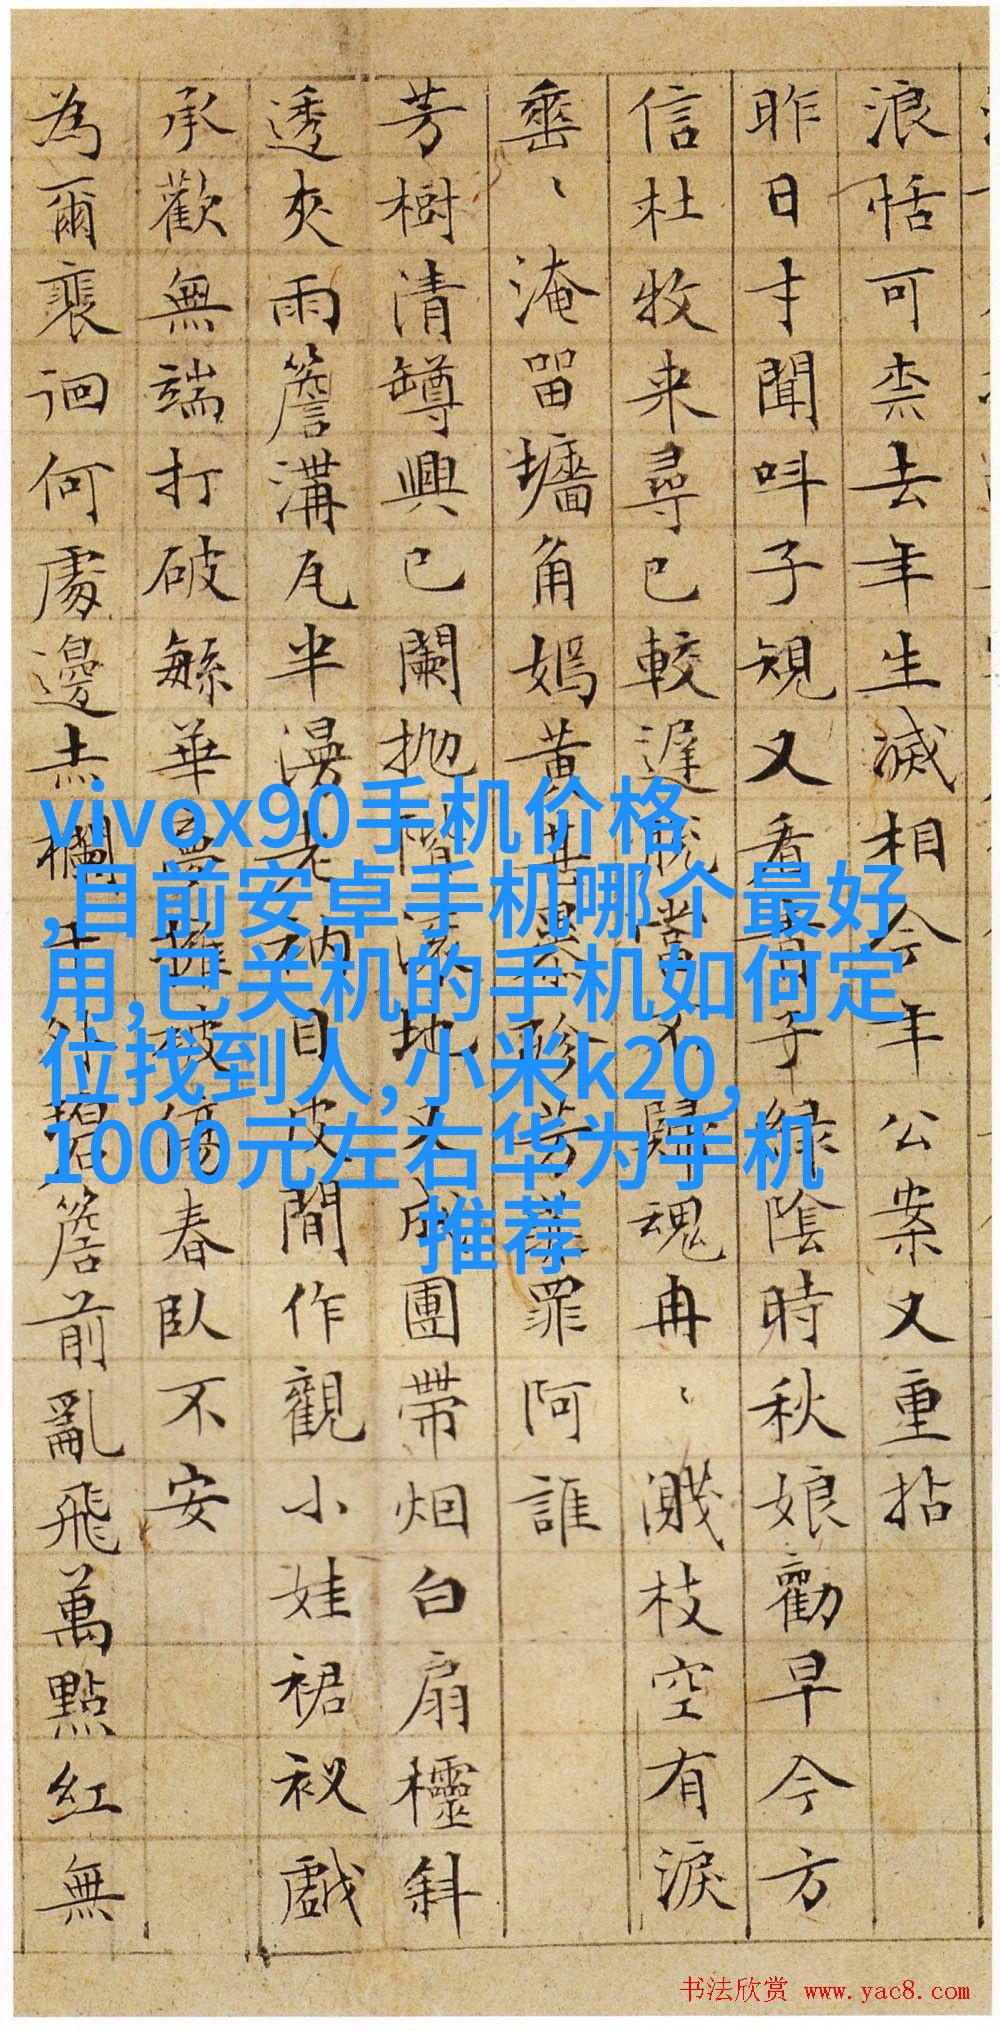 浪恬可柰去年生滅相今年公案又重拈
昨日才聞叫子規又看青子綠陰時秋娘勸早今方
信杜牧来尋已較遲不歸魂冉丶濺枝空有淚
丶淹留墻角嫣黄珍芳罪阿誰
芳樹清罇興已闌抛階滚地又成團帶烟白扇欞斜
透夾雨簷溝瓦半漫老衲目皮間作觀小娃裙衩戲
承歡無端打破繁華夢擁被傷春臥不安
為爾裵徊何處邊赤欄干外碧簷前亂飛萬點紅無
vivox90手机价格
,目前安卓手机哪个最好
用,已关机的手机如何定
位找到人,小米k20,
1000元左右华为手机
推荐
书法欣赏 www.yac8.com